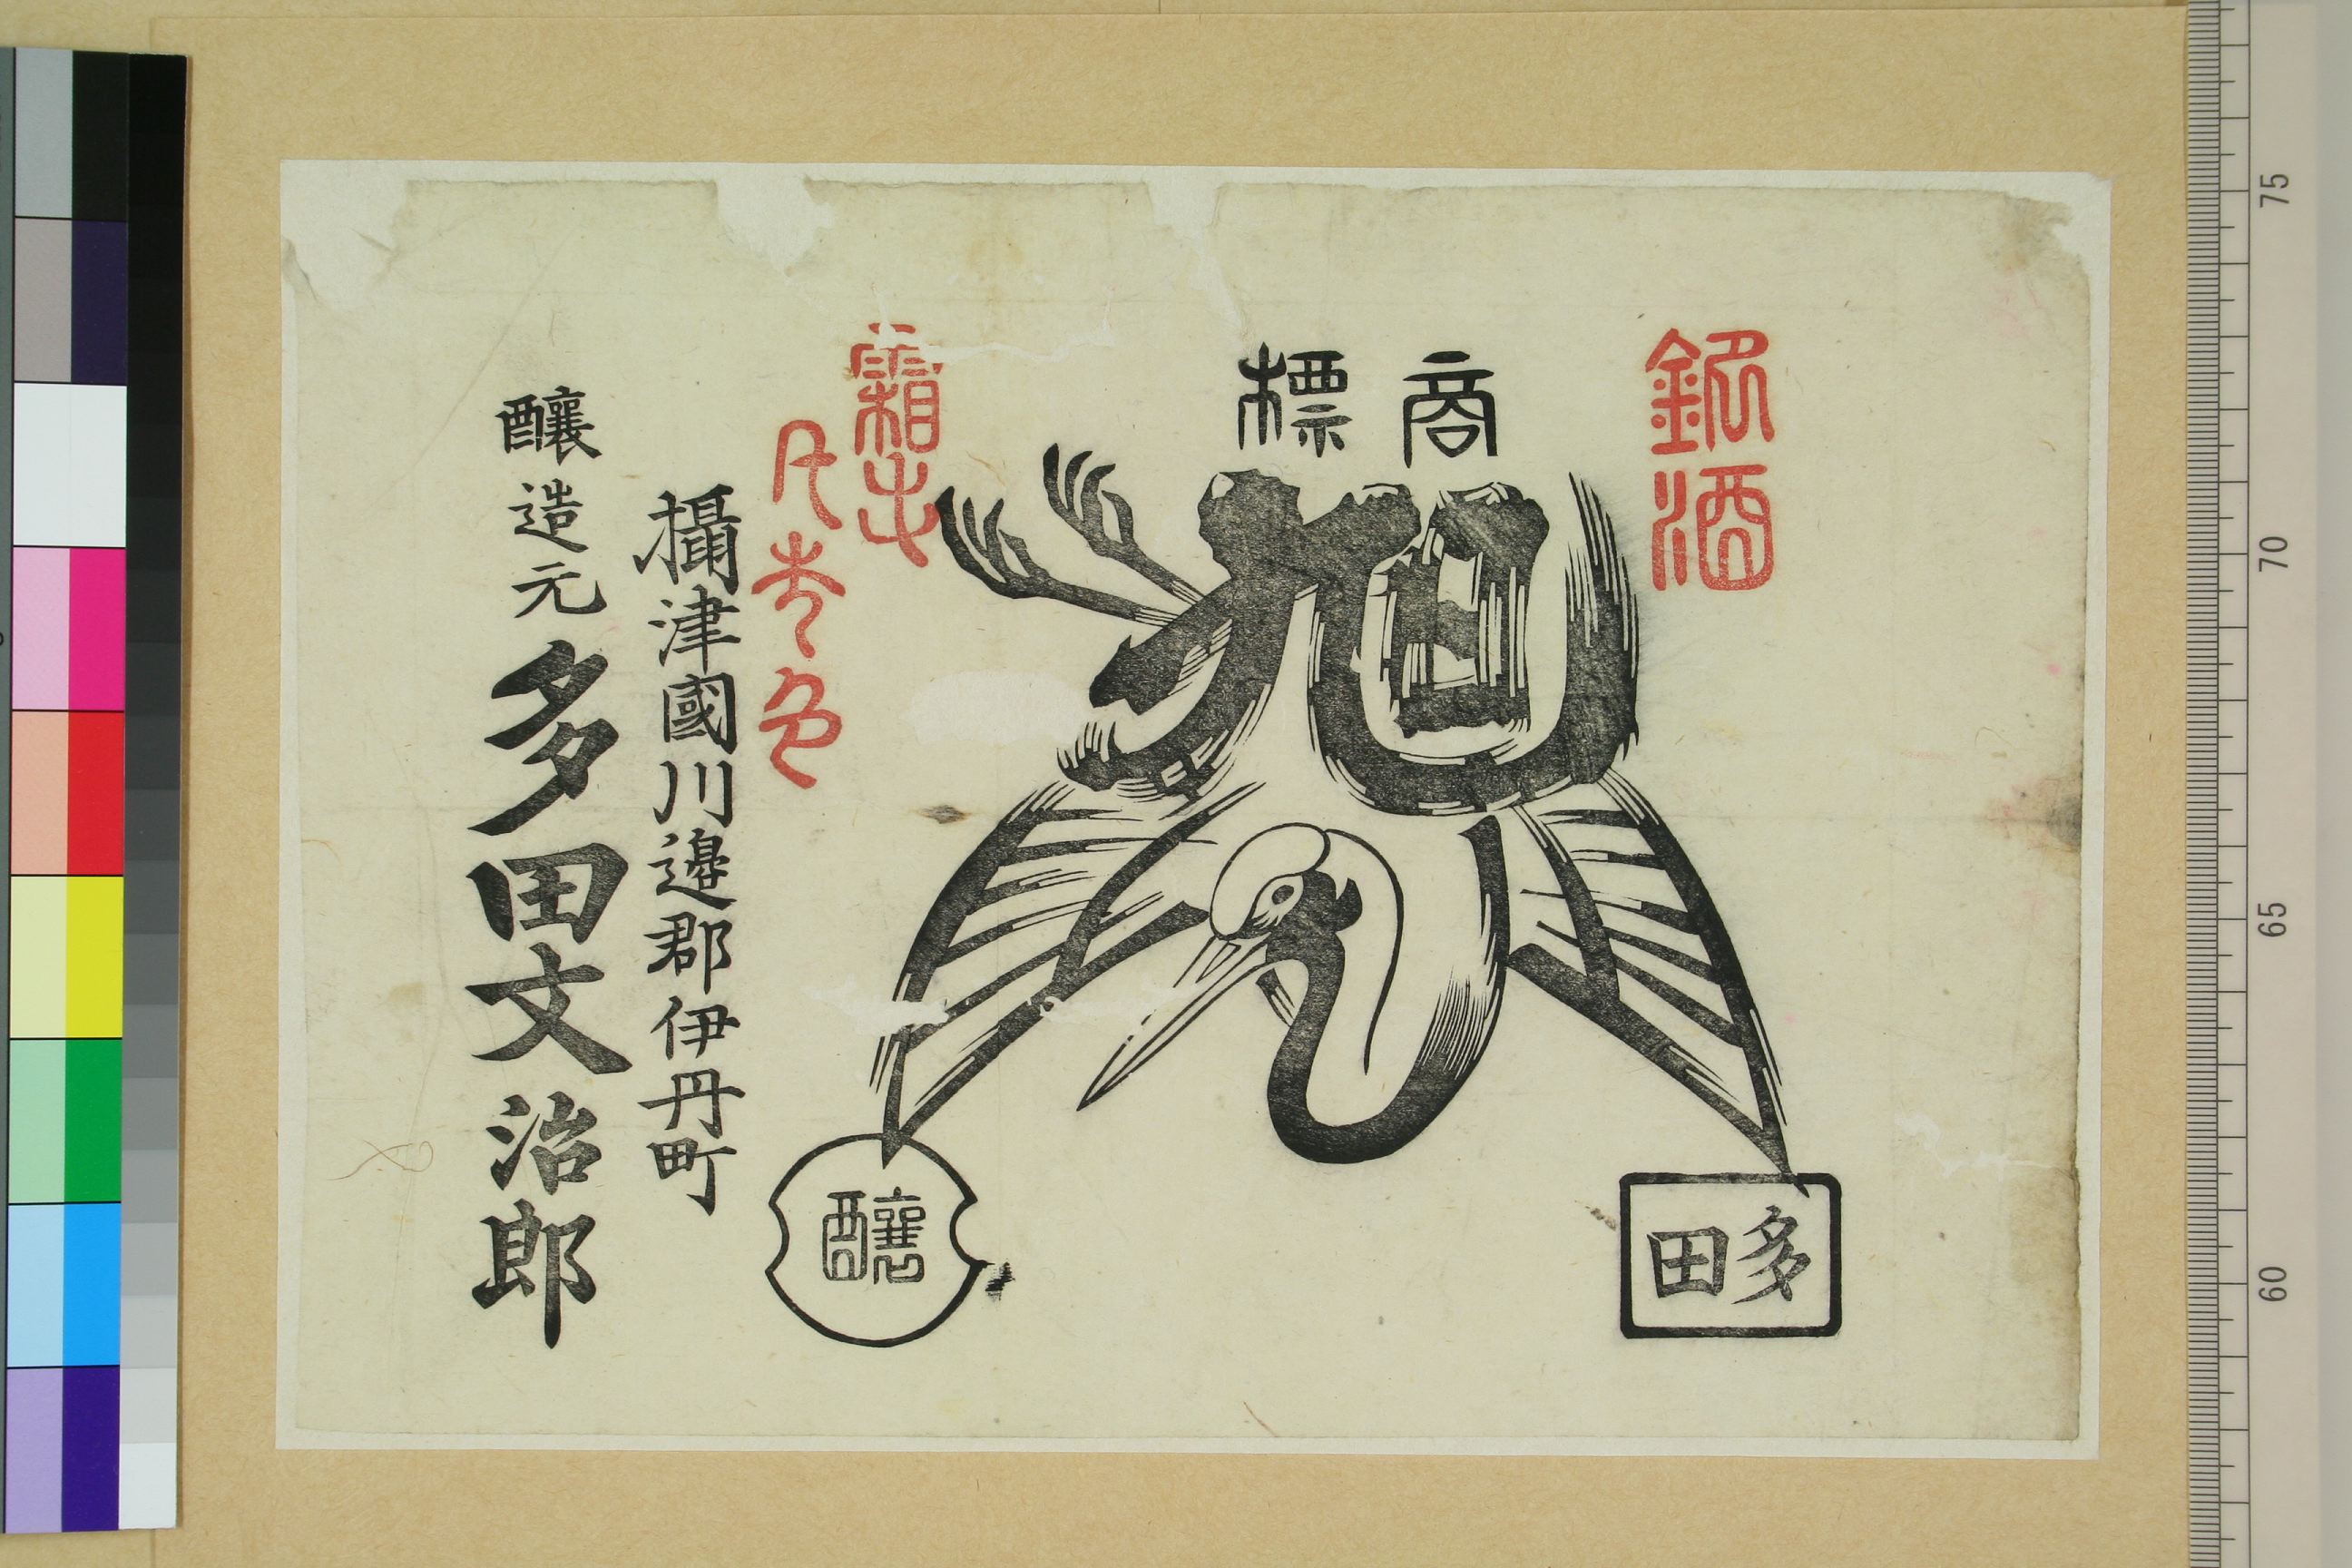 銘酒
商標
多田
霜
色
釀
攝津國川邊郡伊丹町
釀造元 多田文治郎
75
70
65
60